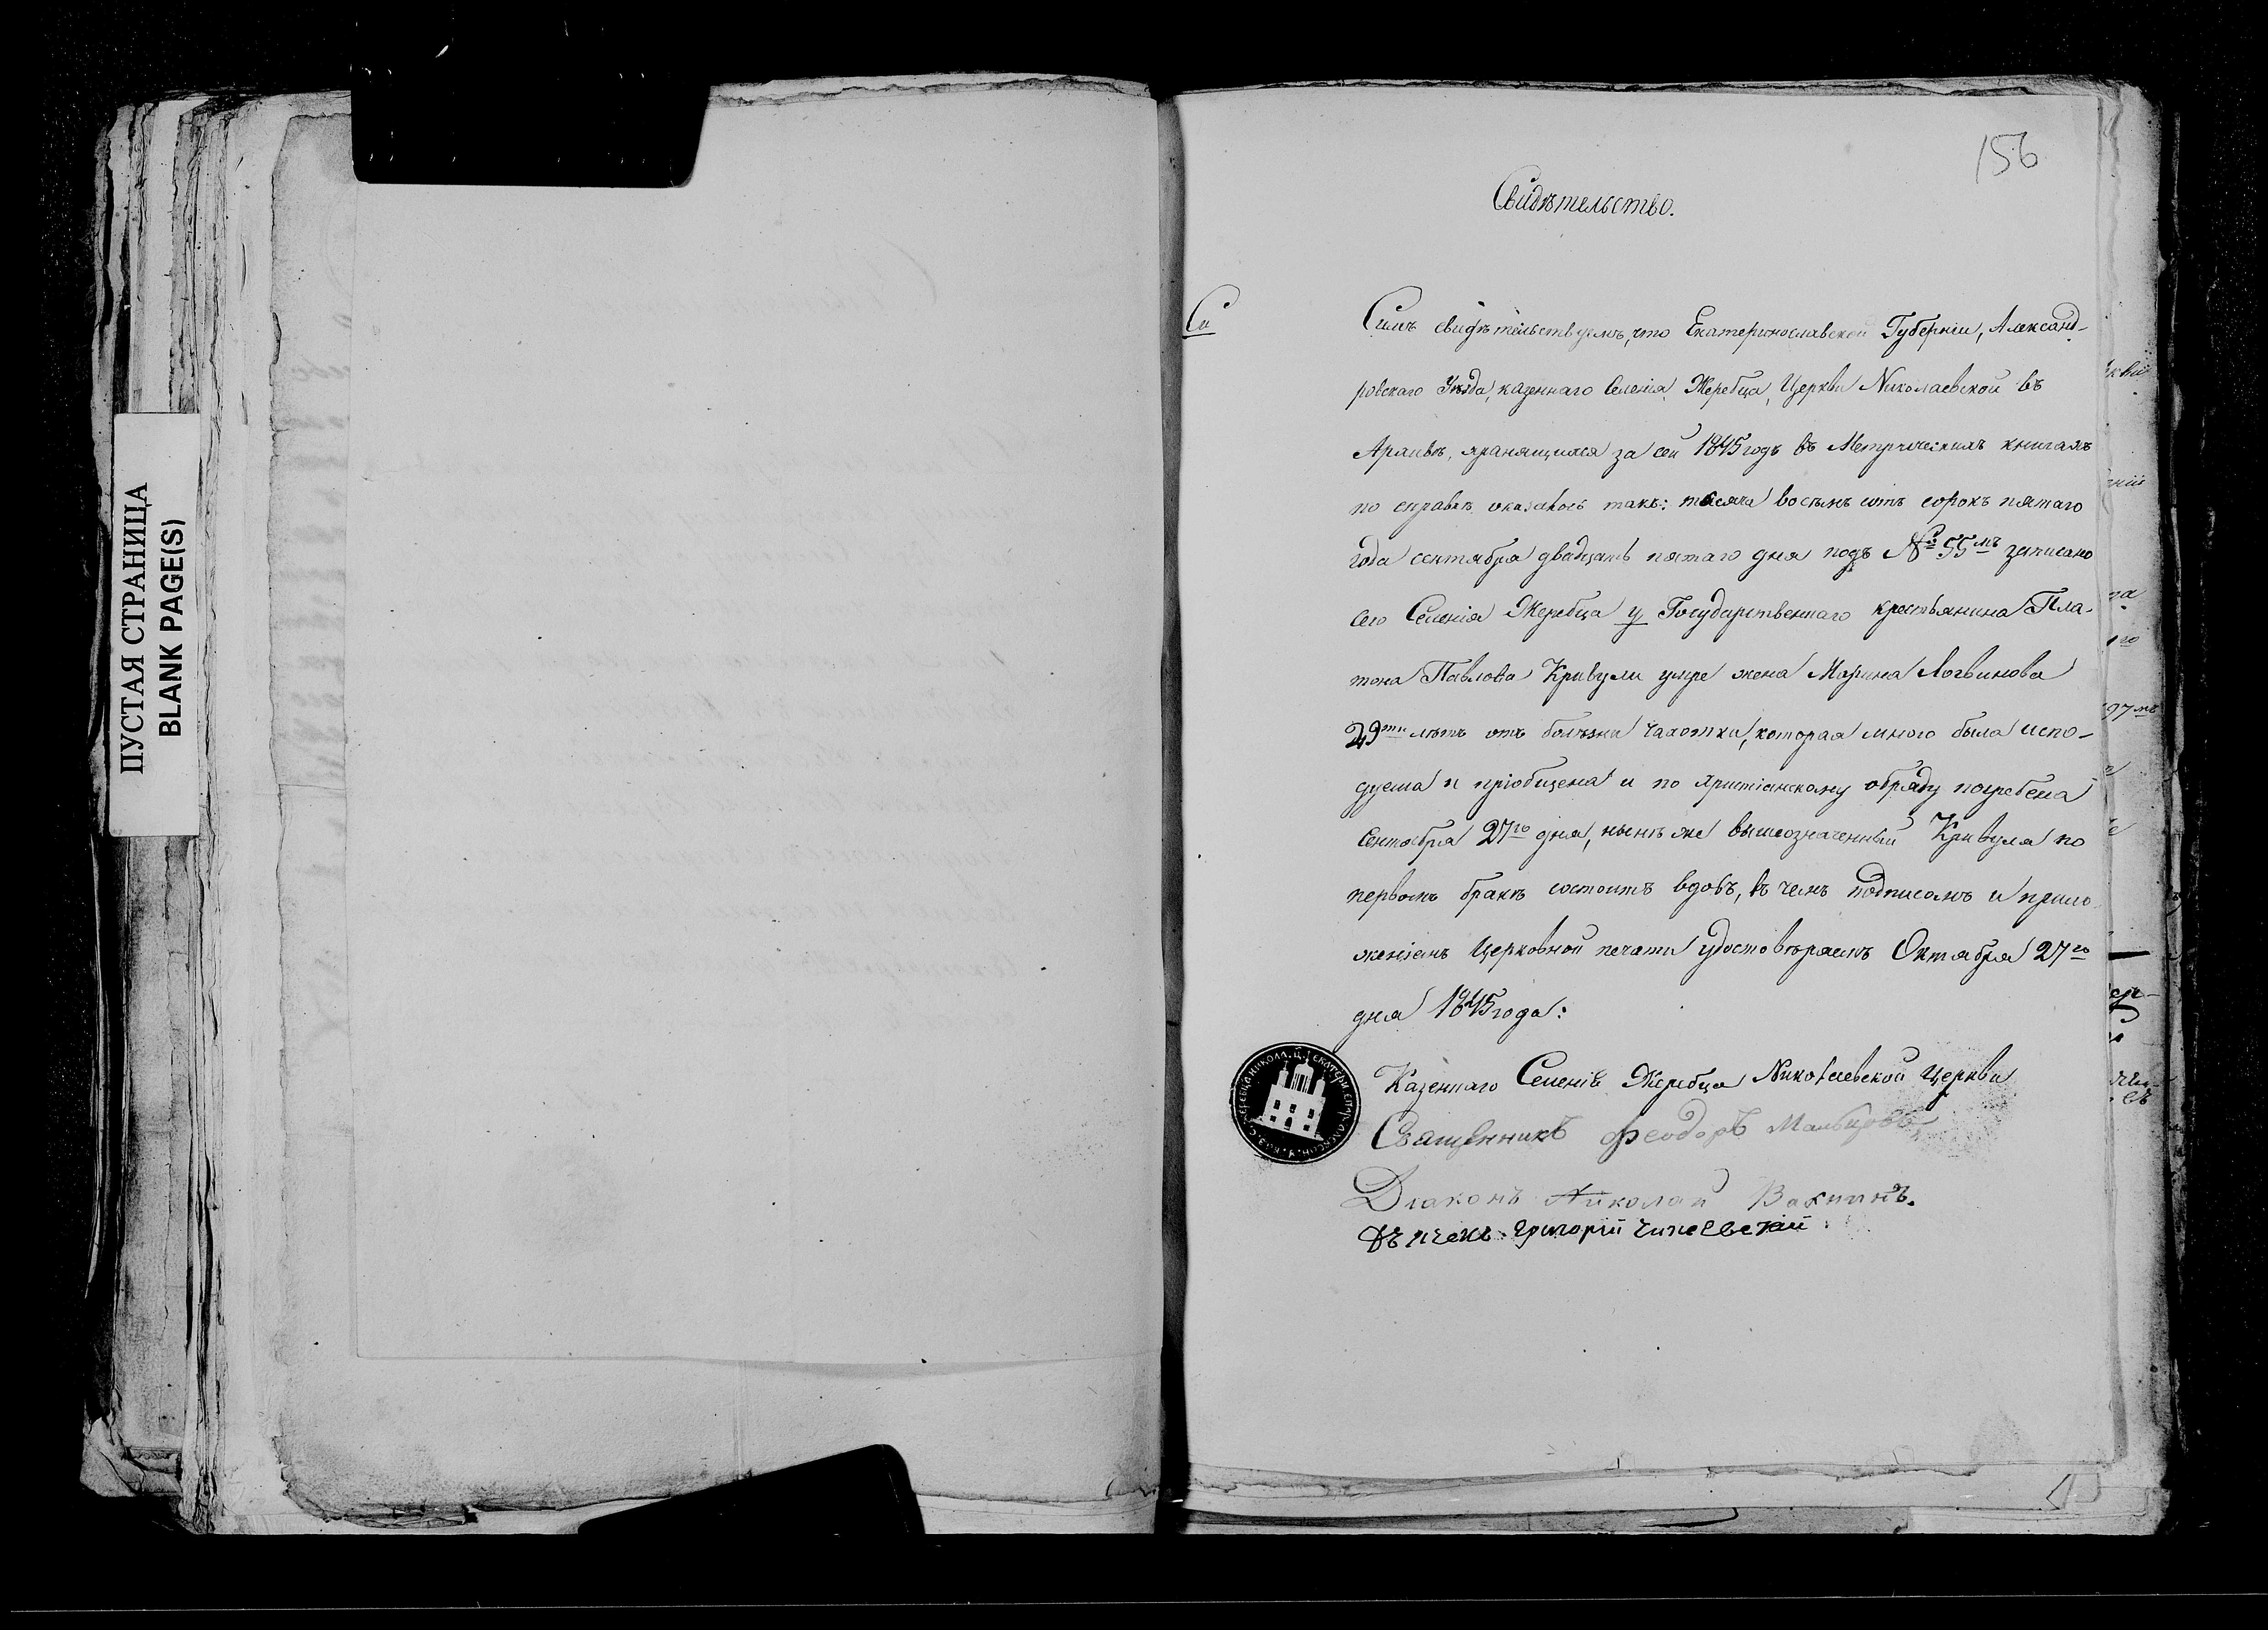 ПУСТАЯ СТРАНИЦА
BLANK PAGE(S)
156
Свидѣтельство.
Си
Симъ свидѣтельствуемъ, что Екатеринославской Губерніи, Александ-
ровскаго Уѣзда, казеннаго Селенія Жеребца, Церкви Николаевской въ
Архивѣ, хранящихся за сей 1845 годъ въ Метрическихъ книгахъ
по справкѣ оказалось такъ: тысяча восемь сотъ сорокъ пятаго
года сентября двадцать пятаго дня подъ № 55мъ записано
сего Селенія Жеребца у Государственнаго крестьянина Пла-
тона Павлова Кривули умре жена Марина Логвинова
29ти лѣтъ отъ болѣзни чахотки, которая мною была испо-
дуема и пріобщена и по христіанскому обряду погребена
Сентября 27го дня, нынѣ же вышеозначенный Кривуля по
первомъ бракѣ состоитъ вдовъ, въ чемъ подписомъ и прило
женіемъ Церковной печати удостовѣряемъ Октября 27го
дня 1845 года:
Казеннаго Селенія Жеребца Николаевской Церкви
Священникъ Феодоръ
Діаконъ Николай Вахнинъ.
Григорій